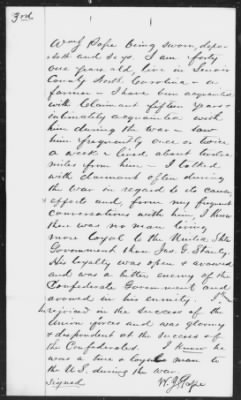 3rd
Wm J Pope Being sworn, depo-
seth and Says. I am forty
one years old live in Lenoir
County North Carolina - a
farmer - I have been acquainted
with Claimant fifteen years -
intimately acquainted with
him during the war - saw
him frequently once or twice
a week - lived about twelve
miles from him - I talked
with claimant often during
the war in regard to its causes
+ effects and, from my frequent
conversations with him, I know
there was no man living
more loyal to the United States
Government than Jas. G.
His loyalty was open + avowed
and was a bitter enemy of the
Confederate Government and
avowed in his enmity.
rejoiced in the success of the
Union forces and was gloomy
+ despondent at the success of
the Confederates. I know he
was a true + loyal man to
the U.S. during the war.
Signed W. J. Pope